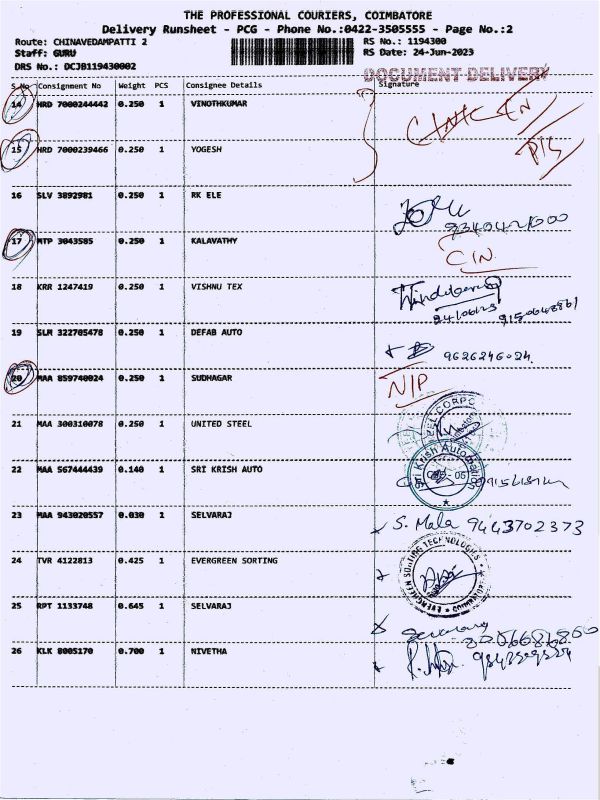 THE PROFESSIONAL COURIERS, COIMBATORE
Delivery Runsheet - PCG - Phone No.:0422-3505555 - Page No.:2
Route: CHINAVEDAMPATTI 2
RS No.: 1194300
Staff: GURU
RS Date: 24-Jun-2023
DRS No.: DCJB119430002
DOCUMENT DELIVERY
S.No Consignment No Weight PCS Consignee Details Signature
14 HRD 7000244442 0.250 1 VINOTHKUMAR
15 HRD 7000239466 0.250 1 YOGESH
16 SLV 3892981 0.250 1 RK ELE
17 MTP 3043585 0.250 1 KALAVATHY
CIN
18 KRR 1247419 0.250 1 VISHNU TEX
19 SLM 322705478 0.250 1 DEFAB AUTO
9626246024
20 MAA 859740024 0.250 1 SUDHAGAR
N/P
21 MAA 300310078 0.250 1 UNITED STEEL
22 MAA 567444439 0.140 1 SRI KRISH AUTO
Sri Krish Automation
23 MAA 943020557 0.030 1 SELVARAJ
S. Mala 9443702373
24 TVR 4122813 0.425 1 EVERGREEN SORTING
EVERGREEN SORTING TECHNOLOGIES
25 RPT 1133748 0.645 1 SELVARAJ
26 KLK 8005170 0.700 1 NIVETHA